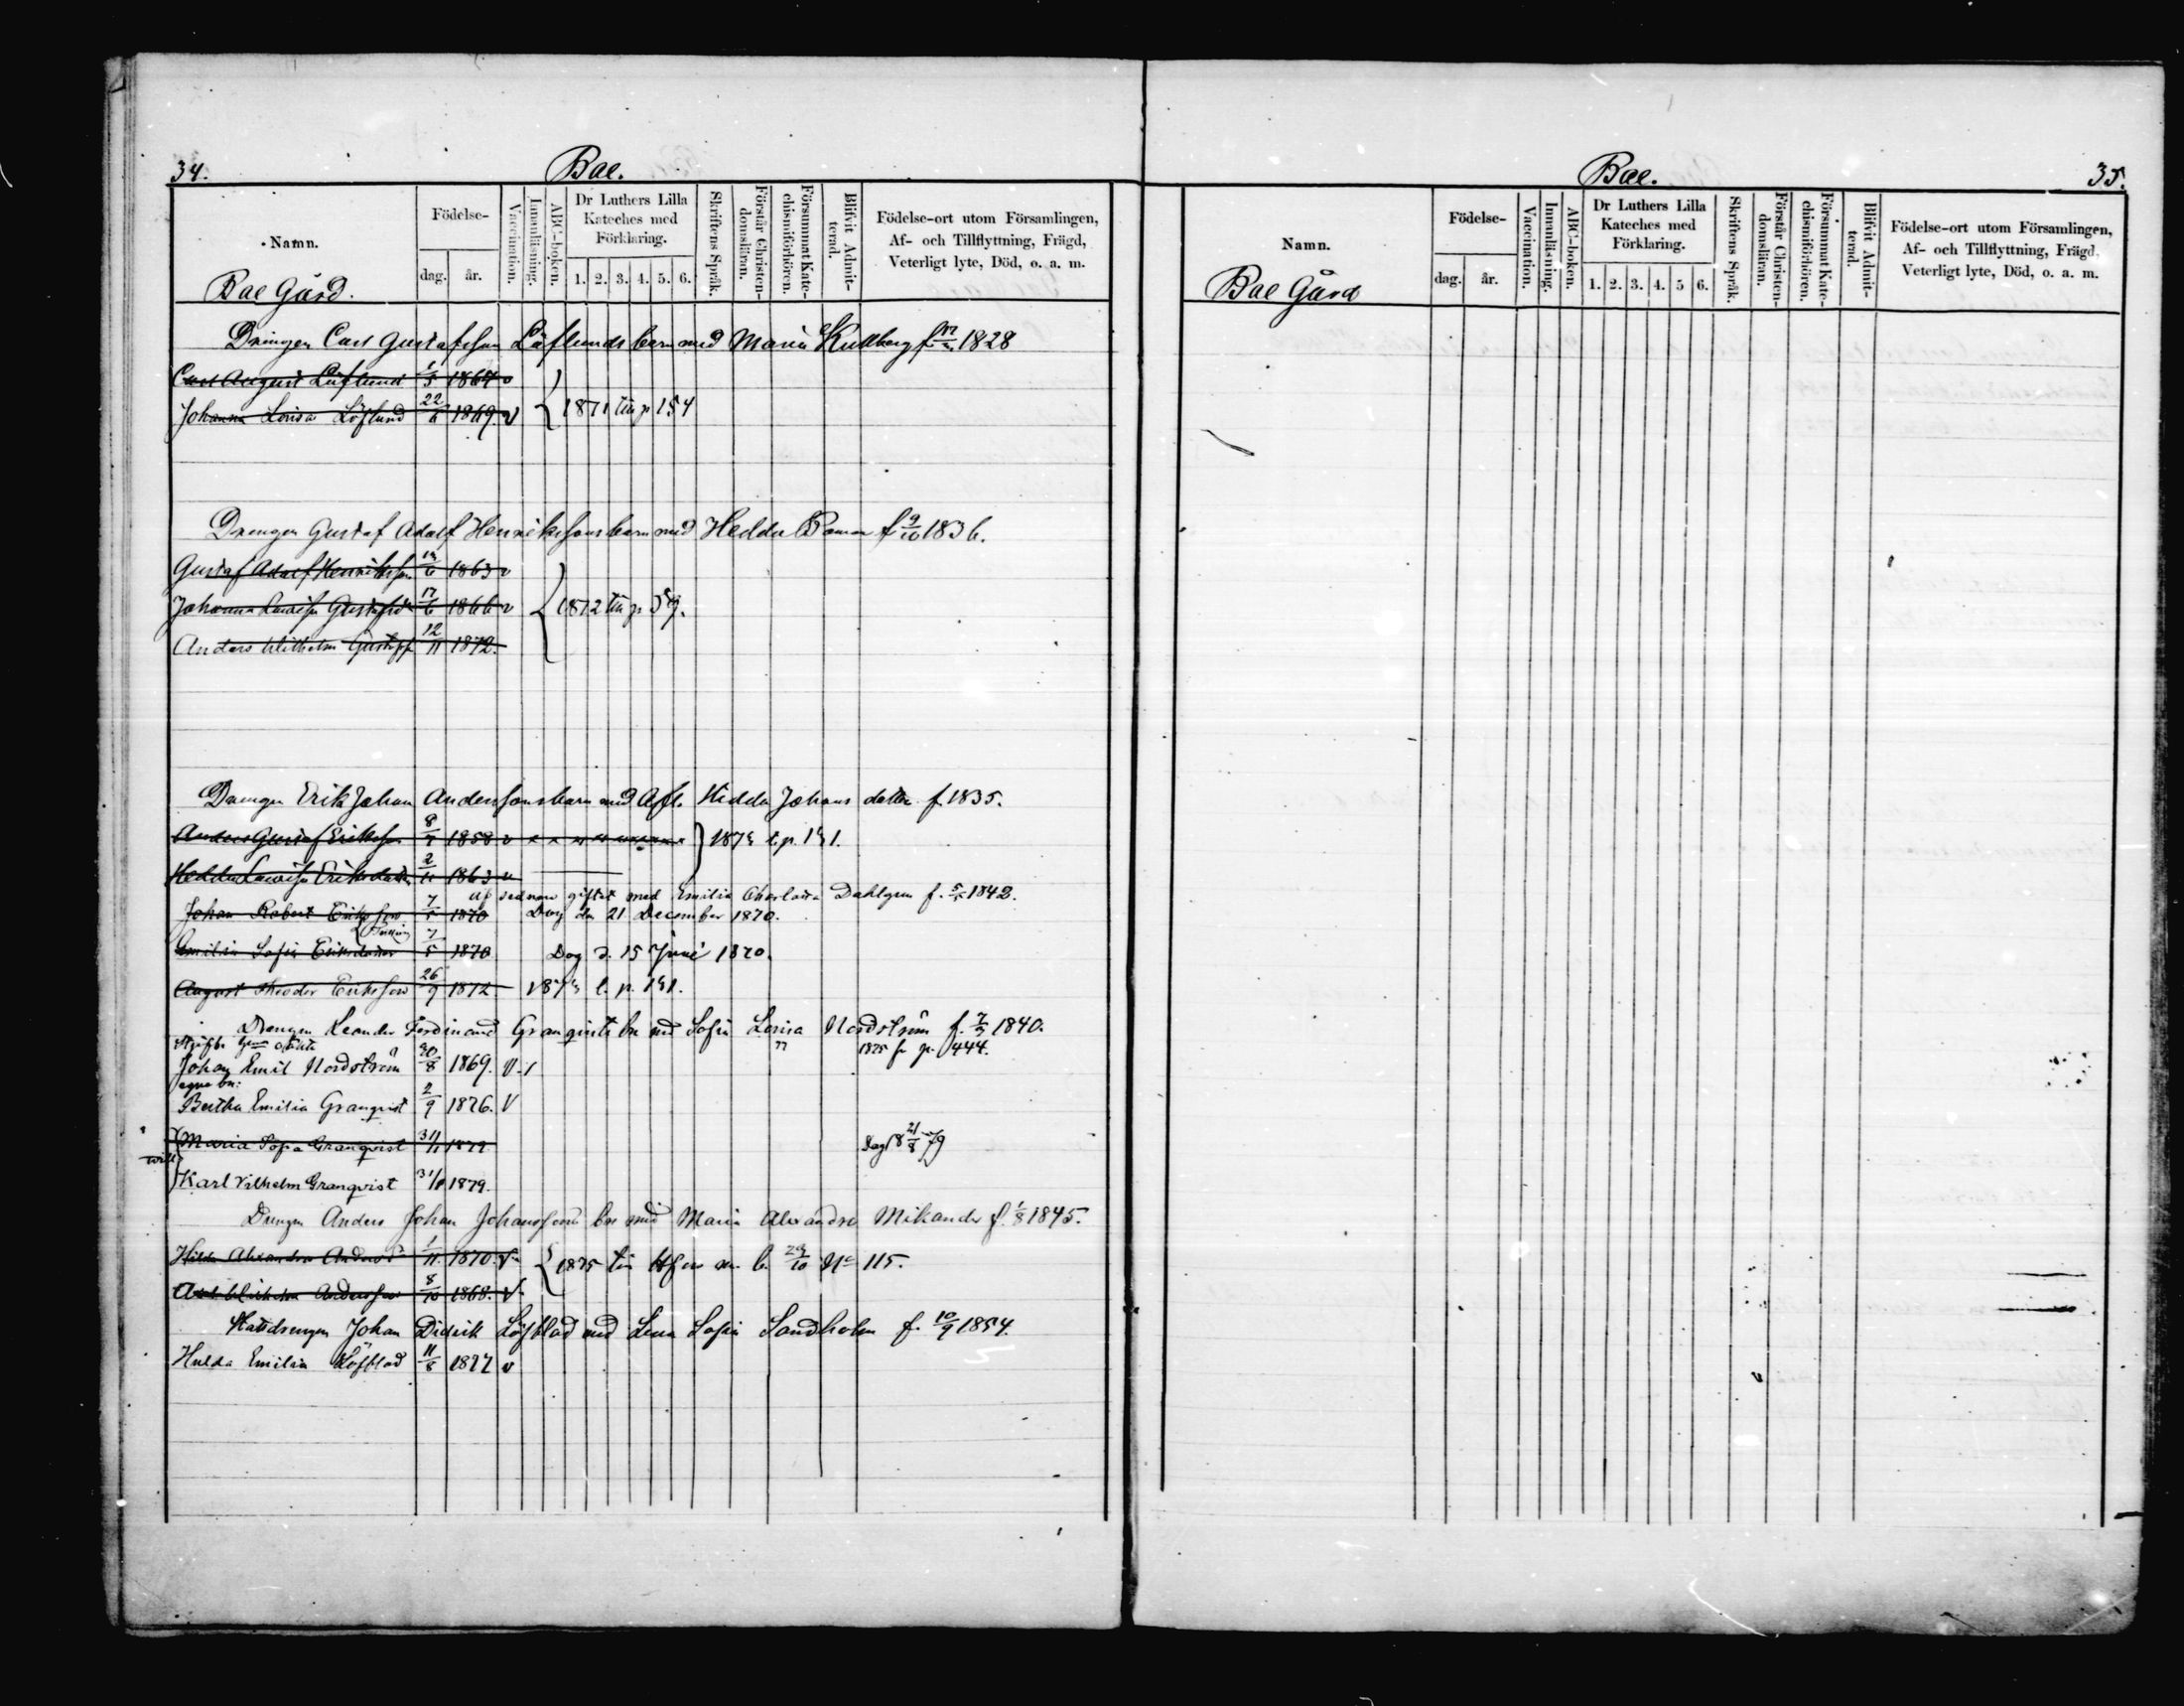 34.
Bae.
Namn.
Födelse-
dag. år.
Vaccination.
Innanläsning.
ABC-boken.
Dr Luthers Lilla
Kateches med
Förklaring.
1. 2. 3. 4. 5. 6.
Skriftens Språk.
Förstår Christen-
domsläran.
Försummat Kate-
chismiförhören.
Blifvit Admit-
terad.
Födelse-ort utom Församlingen,
Af- och Tillflyttning, Frägd,
Veterligt lyte, Död, o. a. m.
Bae Gård.
Drengen Carl Gustafsson Löflunds barn med Maria Kullberg f. 1828
Carl August Löflund 1/5 1864 v
Johanna Lovisa Löflund 22/6 1869. v { 1871 till p 154
Drengen Gustaf Adolf Henrikssons barn med Hedda f 9/10 1836.
Gustaf Adolf Henriksson 1863 v
Johanna Lovisa 17/6 1866 v { 1872 till p 59.
Anders Wilhelm 12/11 1872.
Drengen Erik Johan Anderssons barn med Afl. Hedda Johans dotter f. 1835.
Anders Gustaf Eriksson 1858 v
Hedda Lovisa Eriksdotter 1863 v
af sednare giftet med Emilia Charlotta Dahlgren f. 1842.
Johan Robert Eriksson 7/5 1870 Dog den 21 December 1870.
Emilia Sofia Eriksdotter 7/5 1870 Dog d. 15 Juni 1870.
August Theodor Eriksson 26/9 1872
Drengen Leander Ferdinand Granqvists bn med Sofia Lovisa Nordström f. 1840.
1875 fr p. 444.
Johan Emil Nordström 1869. v
egna bn:
Bertha Emilia Granqvist 2/9 1876. v
Maria Sofia Granqvist 31/1 1879. 21/8 79
Karl Vilhelm Granqvist 31/1 1879.
Drengen Anders Johan Johanssons bn med Maria Alexandra Mikander f. 1/8 1845.
Hilda Alexandra 1/11 1870. v { 1875 till 29/10 No 115.
Anderson 8/10 1868. v
Johan Didrik Löfblad med Lena Sofia Sandholm f. 10/9 1854.
Hulda Emilia Löfblad 11/8 1877 v
Bae.
35.
Namn.
Födelse-
dag. år.
Vaccination.
Innanläsning.
ABC-boken.
Dr Luthers Lilla
Kateches med
Förklaring.
1. 2. 3. 4. 5 6.
Skriftens Språk.
Förstår Christen-
domsläran.
Försummat Kate-
chismiförhören.
Blifvit Admit-
terad.
Födelse-ort utom Församlingen,
Af- och Tillflyttning, Frägd,
Veterligt lyte, Död, o. a. m.
Bae Gård